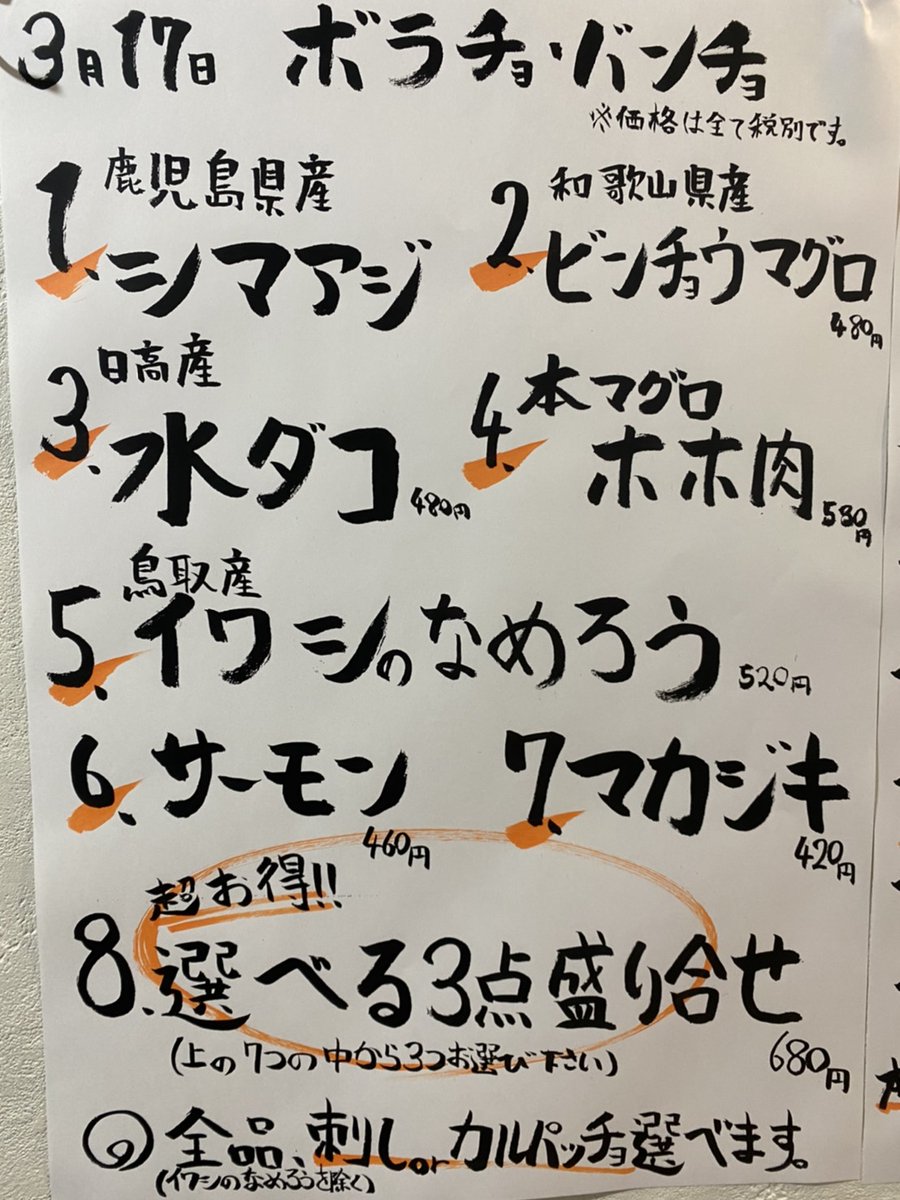 3月17日 ボラチョ・バンチョ
※価格は全て税別です。
1. 鹿児島県産
シマアジ
2. 和歌山県産
ビンチョウマグロ
480円
3. 日高産
水ダコ 480円
4. 本マグロ
ホホ肉 580円
5. 鳥取産
イワシのなめろう 520円
6. サーモン
460円
7. マカジキ
420円
超お得!!
8. 選べる3点盛り合せ
(上の7つの中から3つお選び下さい) 680円
全品、刺しorカルパッチョ選べます。
(イワシのなめろうを除く)